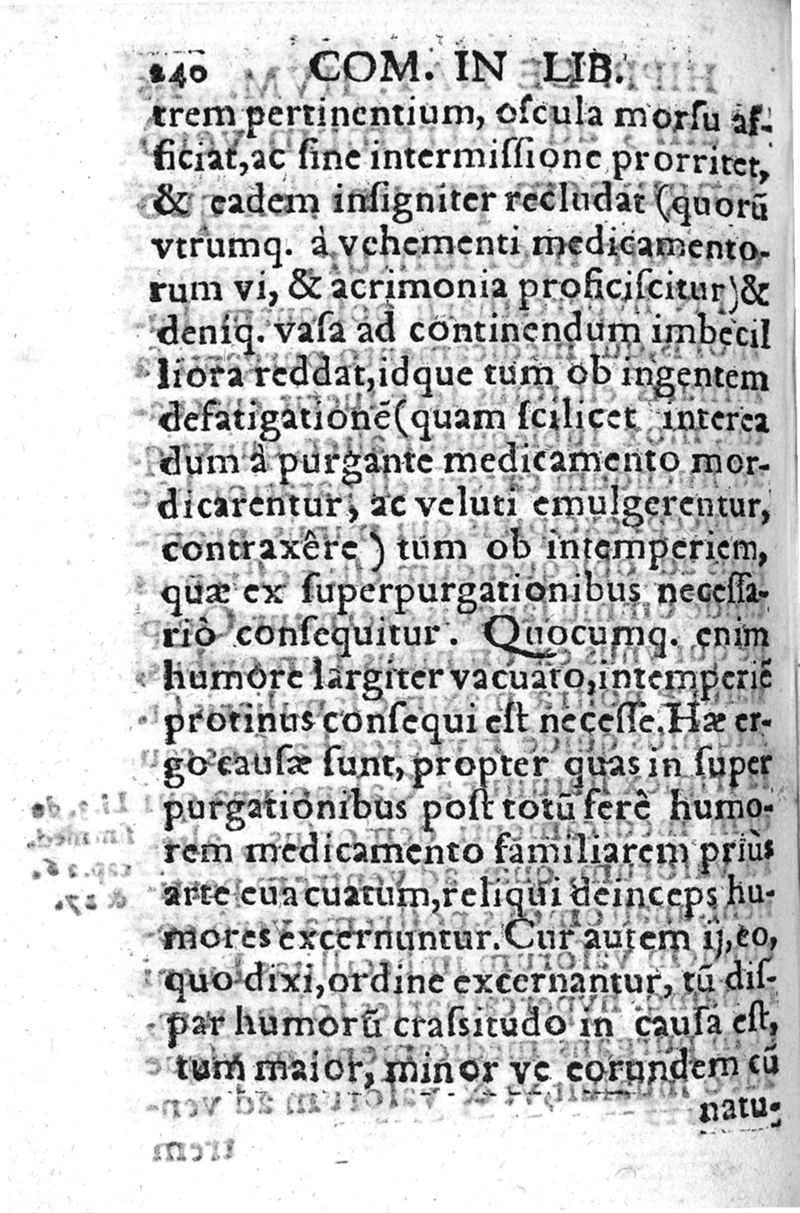 240 COM. IN LIB.
trem pertinentium, oſcula morſu áf-
ficiat, ac ſine intermiſſione prorritet,
& eadem inſigniter recludat (quorũ
vtrumq. à vehementi medicamento-
rum vi, & acrimonia proficiſcitur) &
deniq. vaſa ad continendum imbecil
liora reddat, idque tum ob ingentem
defatigationẽ (quam ſcilicet interea
dum à purgante medicamento mor-
dicarentur, ac veluti emulgerentur,
contraxêre) tum ob intemperiem,
quæ ex ſuperpurgationibus neceſſa-
riò conſequitur. Quocumq. enim
humore largiter vacuato, intemperiẽ
protinus conſequi eſt neceſſe. Hæ er-
go cauſæ ſunt, propter quas in ſuper
purgationibus poſt totũ ferê humo-
rem medicamento familiarem priùs
arte euacuatum, reliqui deinceps hu-
mores excernuntur. Cur autem ij, eo,
quo dixi, ordine excernantur, tũ diſ-
par humorũ craſsitudo in cauſa eſt,
tum maior, minor ve eorundem cũ
natu-